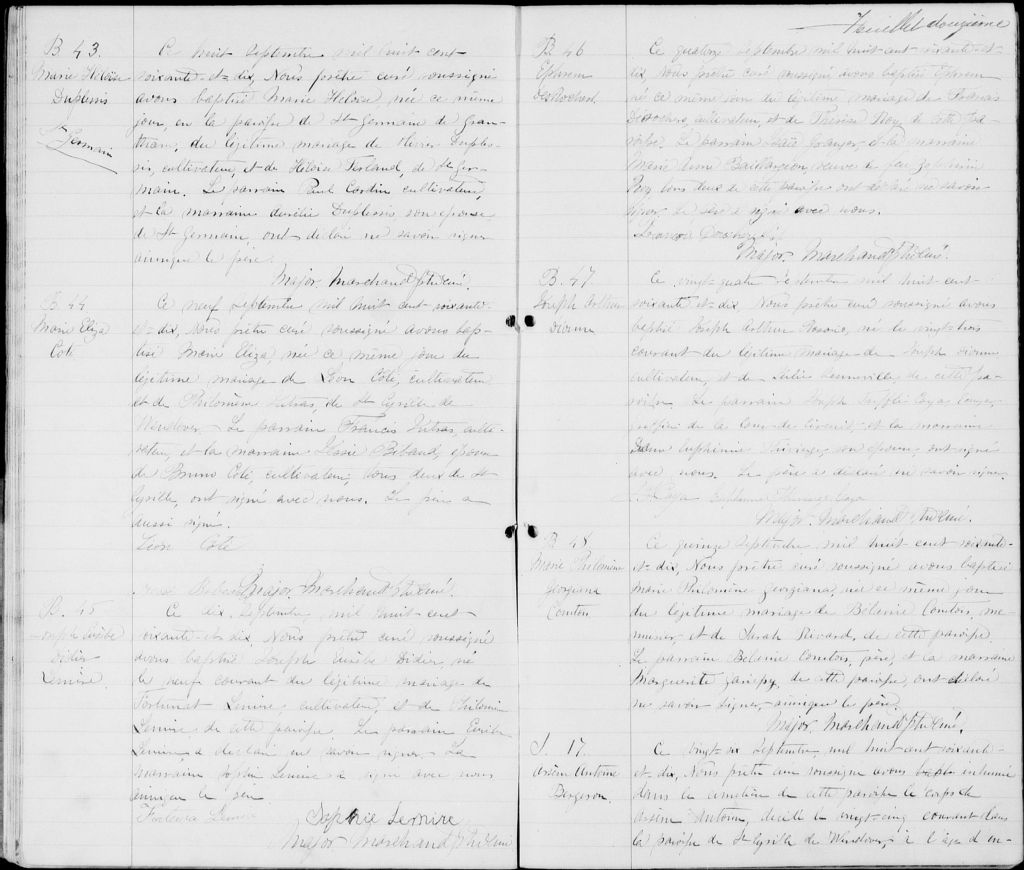 B 43.
Marie Héloïse
Duplessis
St Germain
Ce huit Septembre mil huit cent
soixante-et-dix, Nous prêtre curé soussigné
avons baptisé Marie Héloïse, née ce même
jour, en la paroisse de St Germain de Gran-
tham, du légitime mariage de Duples-
sis, cultivateur, et de Héloïse de St Ger-
main. Le parrain Paul Cardin cultivateur,
et la marraine Aurélie Duplessis, son épouse
de St Germain, ont déclaré ne savoir signer
ainsi que le père.
Major Marchand Ptre Curé.
B 44
Marie Eliza
Coté
Ce neuf Septembre mil huit cent soixante-
et-dix, Nous prêtre curé soussigné avons bap-
tisé Marie Eliza, née ce même jour du
légitime mariage de Léon Coté, cultivateur
et de Philomène Jutras, de St Cyrille de
Wendover. Le parrain Francis Jutras, culti-
vateur, et la marraine Bibaud, épouse
de Bruno Coté, cultivateur, tous deux de St
Cyrille, ont signé avec nous. Le père a
aussi signé.
Léon Coté
Major Marchand Ptre Curé.
B. 45
Joseph Eusèbe
Didier
Lemire.
Ce dix Septembre mil huit cent
soixante-et-dix Nous prêtre curé soussigné
avons baptisé Joseph Eusèbe Didier, né
le neuf courant du légitime mariage de
Fortunat Lemire, cultivateur, et de Philomène
Lemire de cette paroisse. Le parrain Eusèbe
Lemire a déclaré ne savoir signer. La
marraine Sophie Lemire a signé avec nous
ainsi que le père
Lemire
Sophie Lemire
Major Marchand Ptre Curé
Feuillet douzième
B 46
Ephrem
Desrochers
Ce quatorze Septembre mil huit cent soixante-et-
dix, Nous prêtre curé soussigné avons baptisé Ephrem
né ce même jour du légitime mariage de Francois
Desrochers, cultivateur, et de Thérèse Roy, de cette pa-
roisse. Le parrain et la marraine
Marie Anne Baillargeon, veuve de feu Zéphirin
Roy tous deux de cette paroisse ont déclaré ne savoir
signer, le père a signé avec nous.
Major Marchand Ptre Curé.
B. 47
Joseph Arthur
Dionne
Ce vingt-quatre Septembre mil huit cent-
soixante-et-dix Nous prêtre curé soussigné avons
baptisé Joseph Arthur né le vingt-trois
courant du légitime mariage de Joseph Dionne
cultivateur, et de de cette pa-
roisse. Le parrain Joseph
greffier de la Cour de Circuit, et la marraine
Dame Euphémie son épouse, ont signé
avec nous. Le père a déclaré ne savoir signer.
Major Marchand Ptre Curé.
B 48.
Marie Philomène
Georgiana
Comtois
Ce quinze Septembre mil huit cent soixante-
et-dix, Nous prêtre curé soussigné avons baptisé
Marie Philomène Georgiana, née ce même jour
du légitime mariage de Bélonie Comtois, me-
nuisier, et de Sarah Rivard, de cette paroisse.
Le parrain Bélonie Comtois, père, et la marraine
Marguerite Janepy, de cette paroisse, ont déclaré
ne savoir signer, ainsi que le père.
Major Marchand Ptre Curé.
S. 17.
Arsène Antoine
Bergeron.
Ce vingt-six Septembre mil huit cent soixante-
et-dix, Nous prêtre curé soussigné avons inhumé
dans le cimetière de cette paroisse le corps de
Arsène Antoine, décédé le vingt-cinq courant dans
la paroisse de St Cyrille de Wendover, à l'âge d'en-